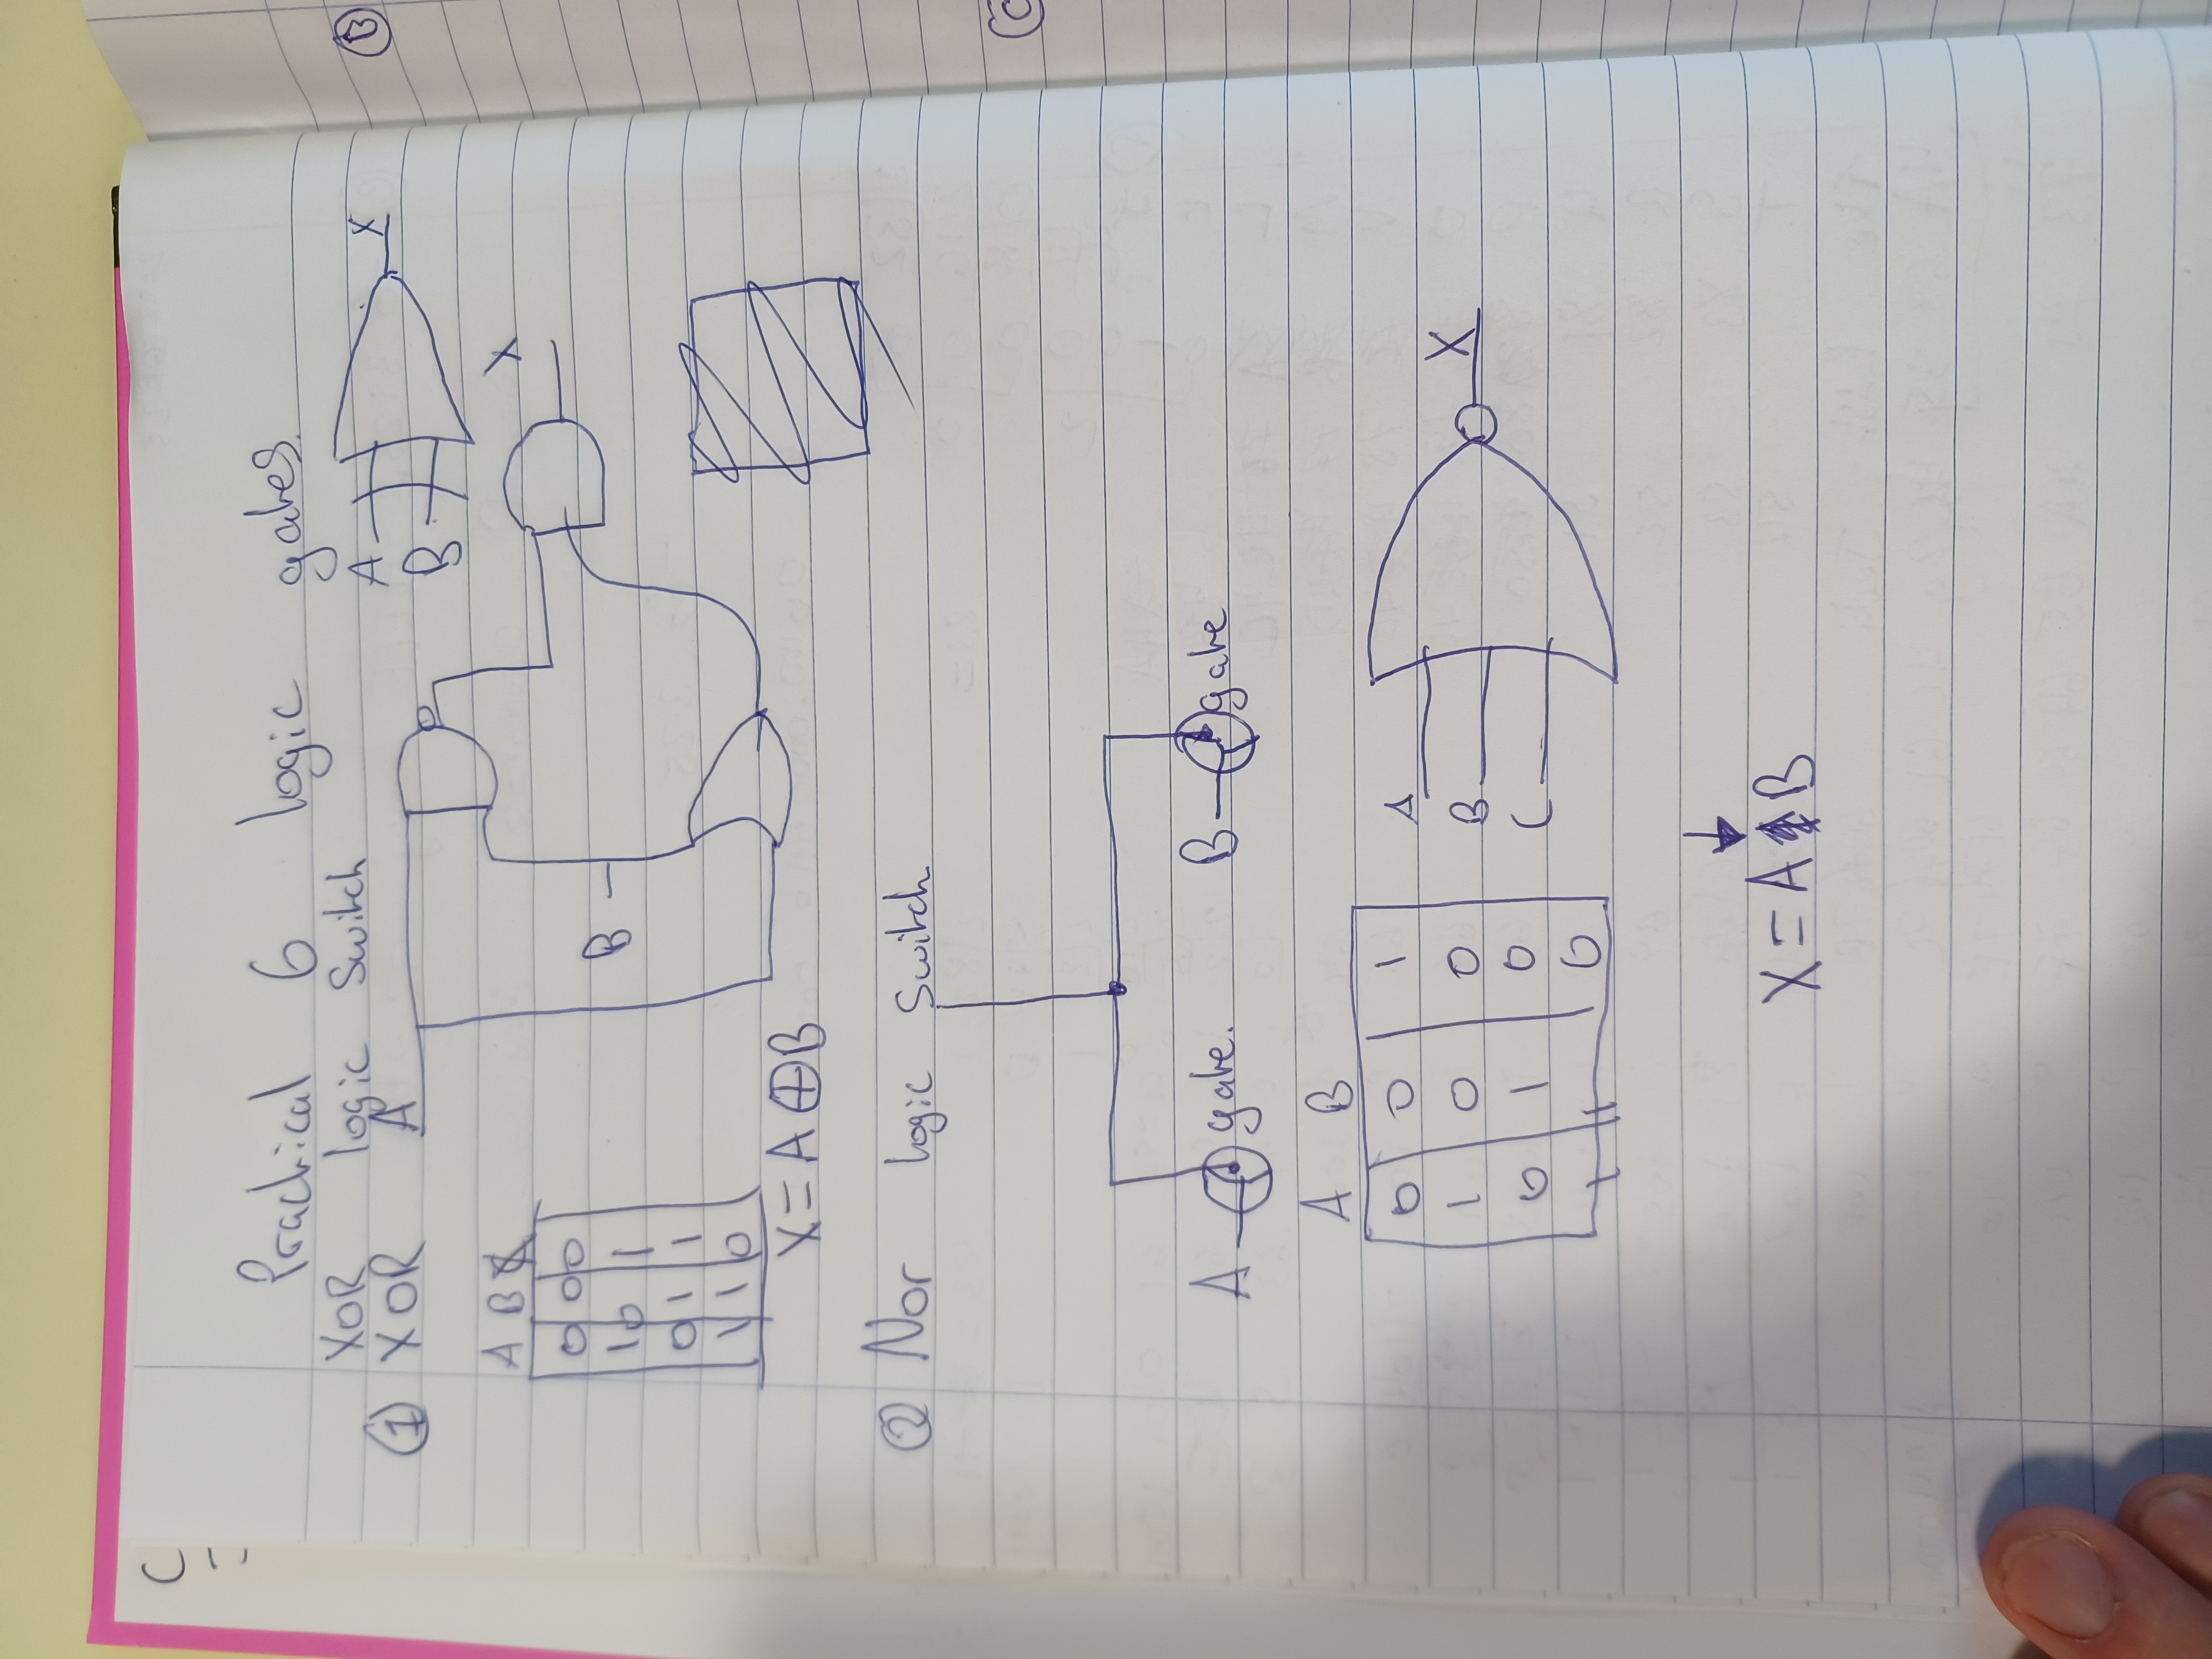 C
Practical 6 logic gates
XOR logic Switch
① XOR A
A X
B
X
A B X
0 0 0
1 0 1
0 1 1
1 1 0
B
X = A ⊕ B
② Nor logic Switch
A gate. B gate
A B
0 0 1
1 0 0
0 1 0
1 1 0
A
B X
C
↓
X = A B
B
C